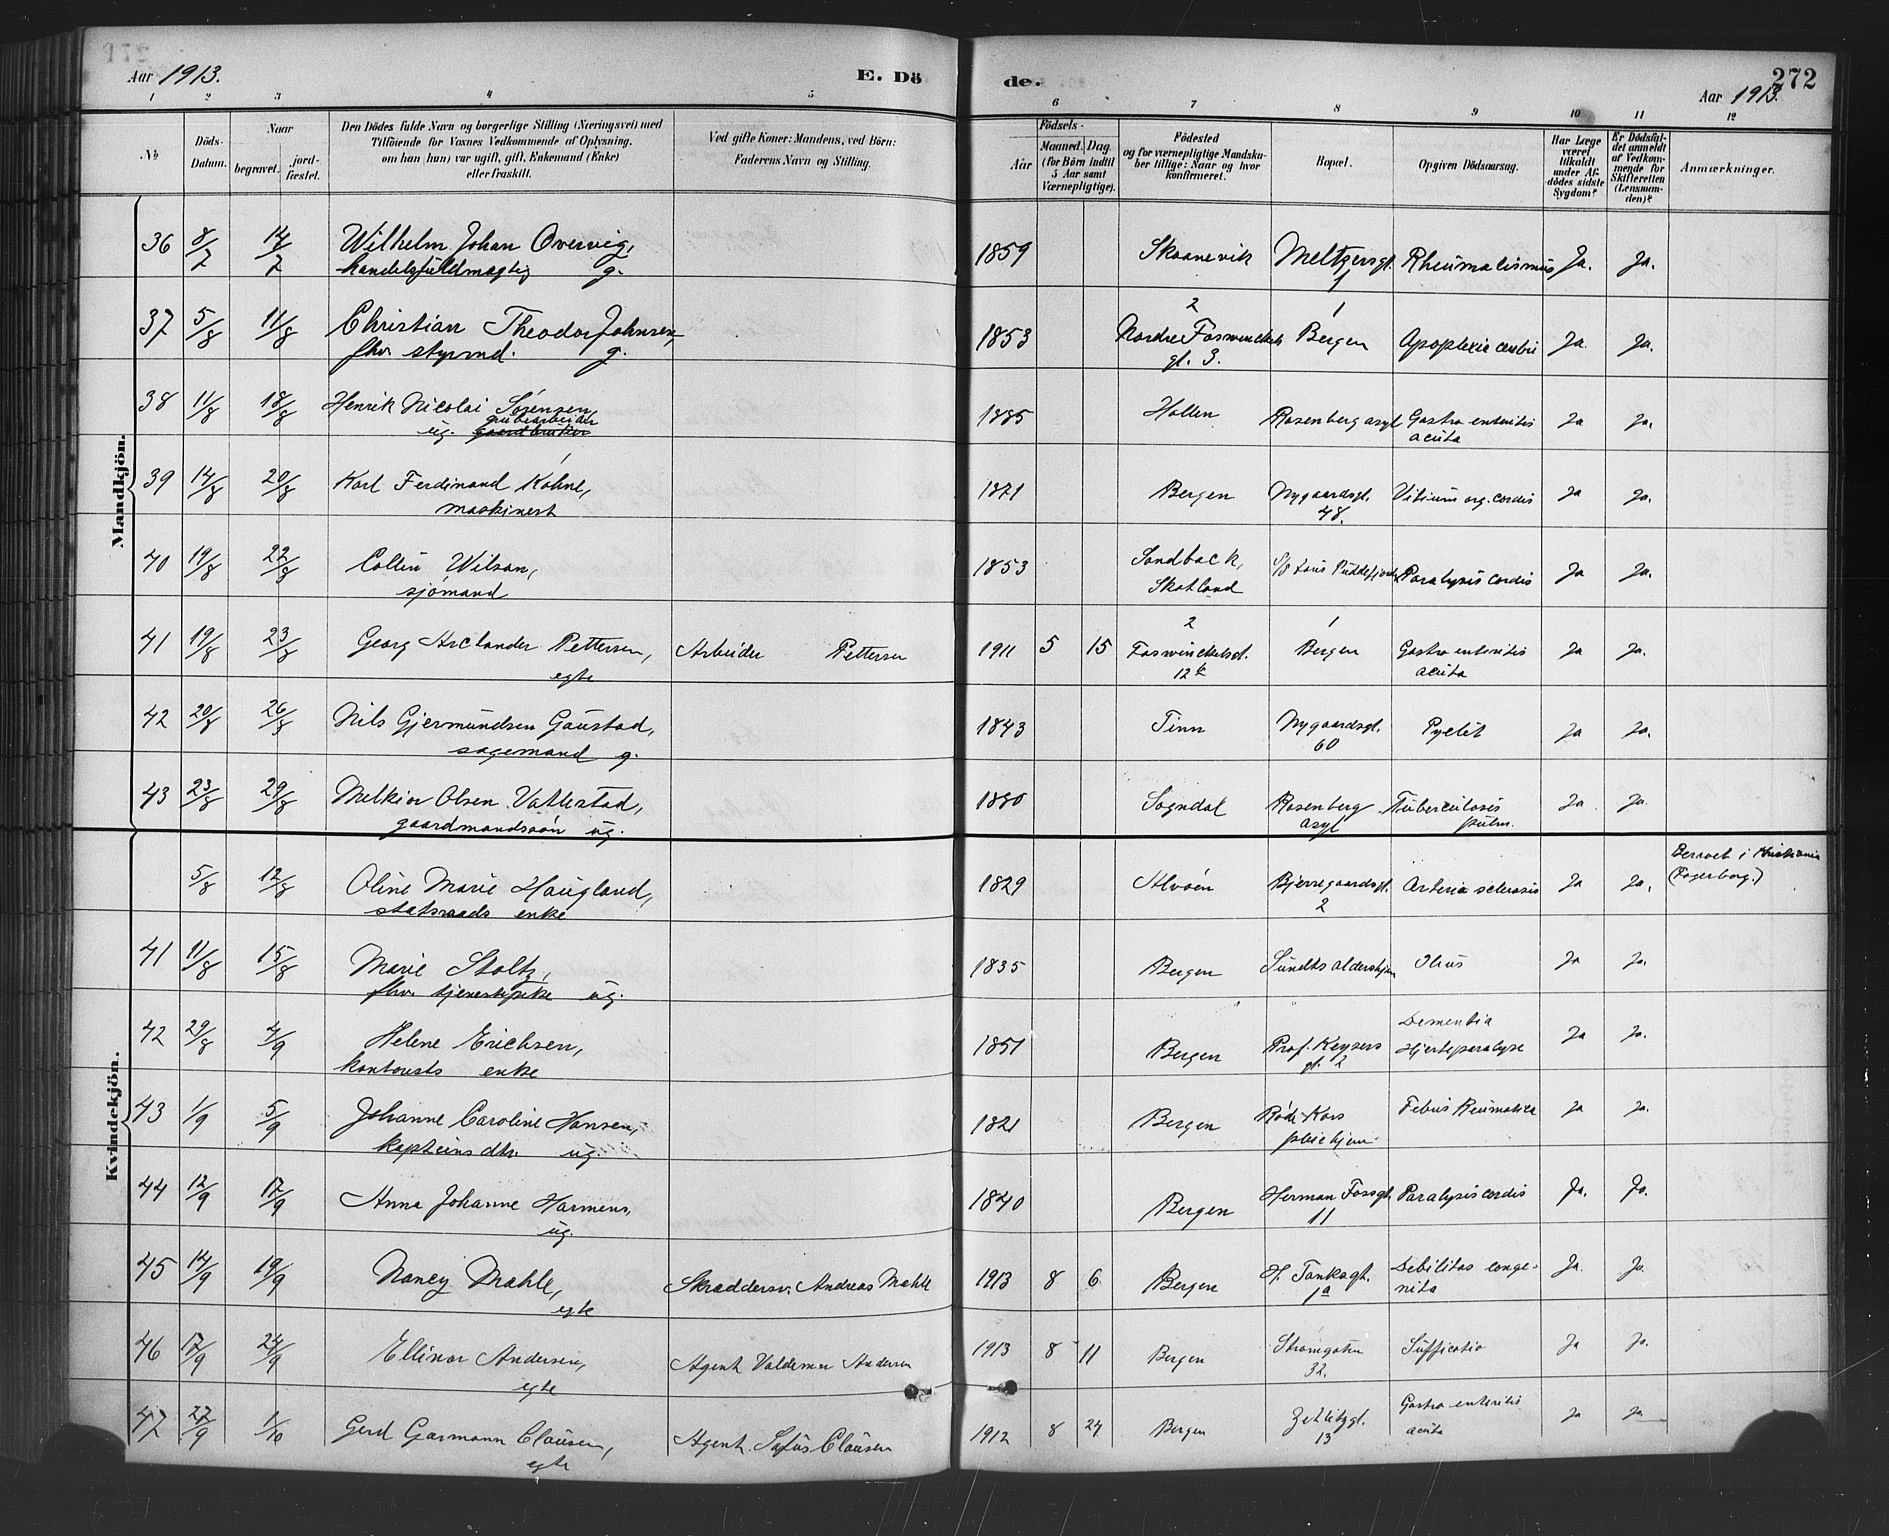 Aar 1913. E. Dö de. 272
Aar 1913.
1 2 3 4 5 6 7 8 9 10 11 12
№
Döds-Datum.
Naar
begravet.
jord-fæstet.
Den Dödes fulde Navn og borgerlige Stilling (Næringsvei) med
Tilföiende for Voxnes Vedkommende af Oplysning,
om han (hun) var ugift, gift, Enkemand (Enke)
eller fraskilt.
Ved gifte Koner: Mandens, ved Börn:
Faderens Navn og Stilling.
Födsels-
Aar
Maaned. Dag.
(for Börn indtil
5 Aar samt
Værnepligtige).
Födested
og for værnepligtige Mandska-
ber tillige: Naar og hvor
konfirmeret.
Bopæl.
Opgiven Dödsaarsag.
Har Læge
været
tilkaldt
under Af-
dödes sidste
Sygdom?
Er Dödsfal-
det anmeldt
af Vedkom-
mende for
Skifteretten
(Lensman-
den)?
Anmærkninger.
Mandkjön.
36 8/7 14/7 Wilhelm Johan Overvig, 1859 Skaanevik Meltzersgt. Rheumatismus Ja. Ja.
handelsfuldmægtig g. 1
37 5/8 11/8 Christian Theodor Johnsen, 1853 Nordre Foswinckels Bergen Apoplexia cerebri Ja. Ja.
fhv. styrmd. g. gt. 3.
38 11/8 18/8 Henrik Nicolai Sørensen, 1885 Hollen Rosenberg asyl Gastro enteritis Ja Ja.
ug. grubearbeider gaardbruker acuta
39 14/8 20/8 Karl Ferdinand Kohne, 1871 Bergen Nygaardsgt. Vitium org. cordis Ja Ja.
maskinest 48.
40 19/8 22/8 Collin Wilson, 1853 Sandback, S/S Puddefjorden Paralysis cordis Ja Ja.
sjömand Skotland
41 19/8 23/8 Georg Pettersen, Arbeider Pettersen 1911 5 15 Foswinckelsgt. Bergen Gastro enteritis Ja Ja.
egte 12 acuta
42 20/8 26/8 Nils Gjermundsen Gaustad, 1843 Tinn Nygaardsgt. Pyelit Ja Ja.
sagemand g. 60
43 23/8 29/8 Melkior Olsen Vatlestad, 1880 Sogndal Rosenberg Tuberculosis Ja. Ja.
gaardmandssön ug. asyl pulm.
Kvindekjön.
5/8 12/8 Oline Marie Haugland, 1829 Alvöen Bjerregaardsgt. Arteria sclerosis Ja Ja. Begravet i Kristiania
statsraads enke 2 (Fagerborg.)
41 11/8 15/8 Marie Stoltz, 1835 Bergen Sundts aldershjem Ilius Ja Ja.
fhv. tjenestepike ug.
42 29/8 4/9 Helene Erichsen, 1851 Bergen Prof. Keysers Dementia Ja Ja.
kontorists enke gt. 2 Hjerteparalyse
43 1/9 5/9 Johanne Caroline Hansen, 1821 Bergen Röde Kors Febris Reumatica Ja Ja.
kapteins dtr. ug. pleiehjem
44 12/9 17/9 Anna Johanne Harmens, 1840 Bergen Herman Fossgt. Paralysis cordis Ja. Ja.
ug. 11
45 14/9 19/9 Nancy Mahle, Skræddersv. Andreas Mahle 1913 8 6 Bergen H. Tanksgt. Debilitas conge- Ja. Ja.
egte 1a nita
46 17/9 24/9 Ellinor Andersen, Agent Valdemar Andersen 1913 8 11 Bergen Strömgaten Suffocatio Ja Ja.
egte 32.
47 27/9 1/10 Gerd Garmann Clausen, Agent Sofus Clausen 1912 8 24 Bergen Zetlitzgt. Gastro enteritis Ja Ja
egte 13 acuta